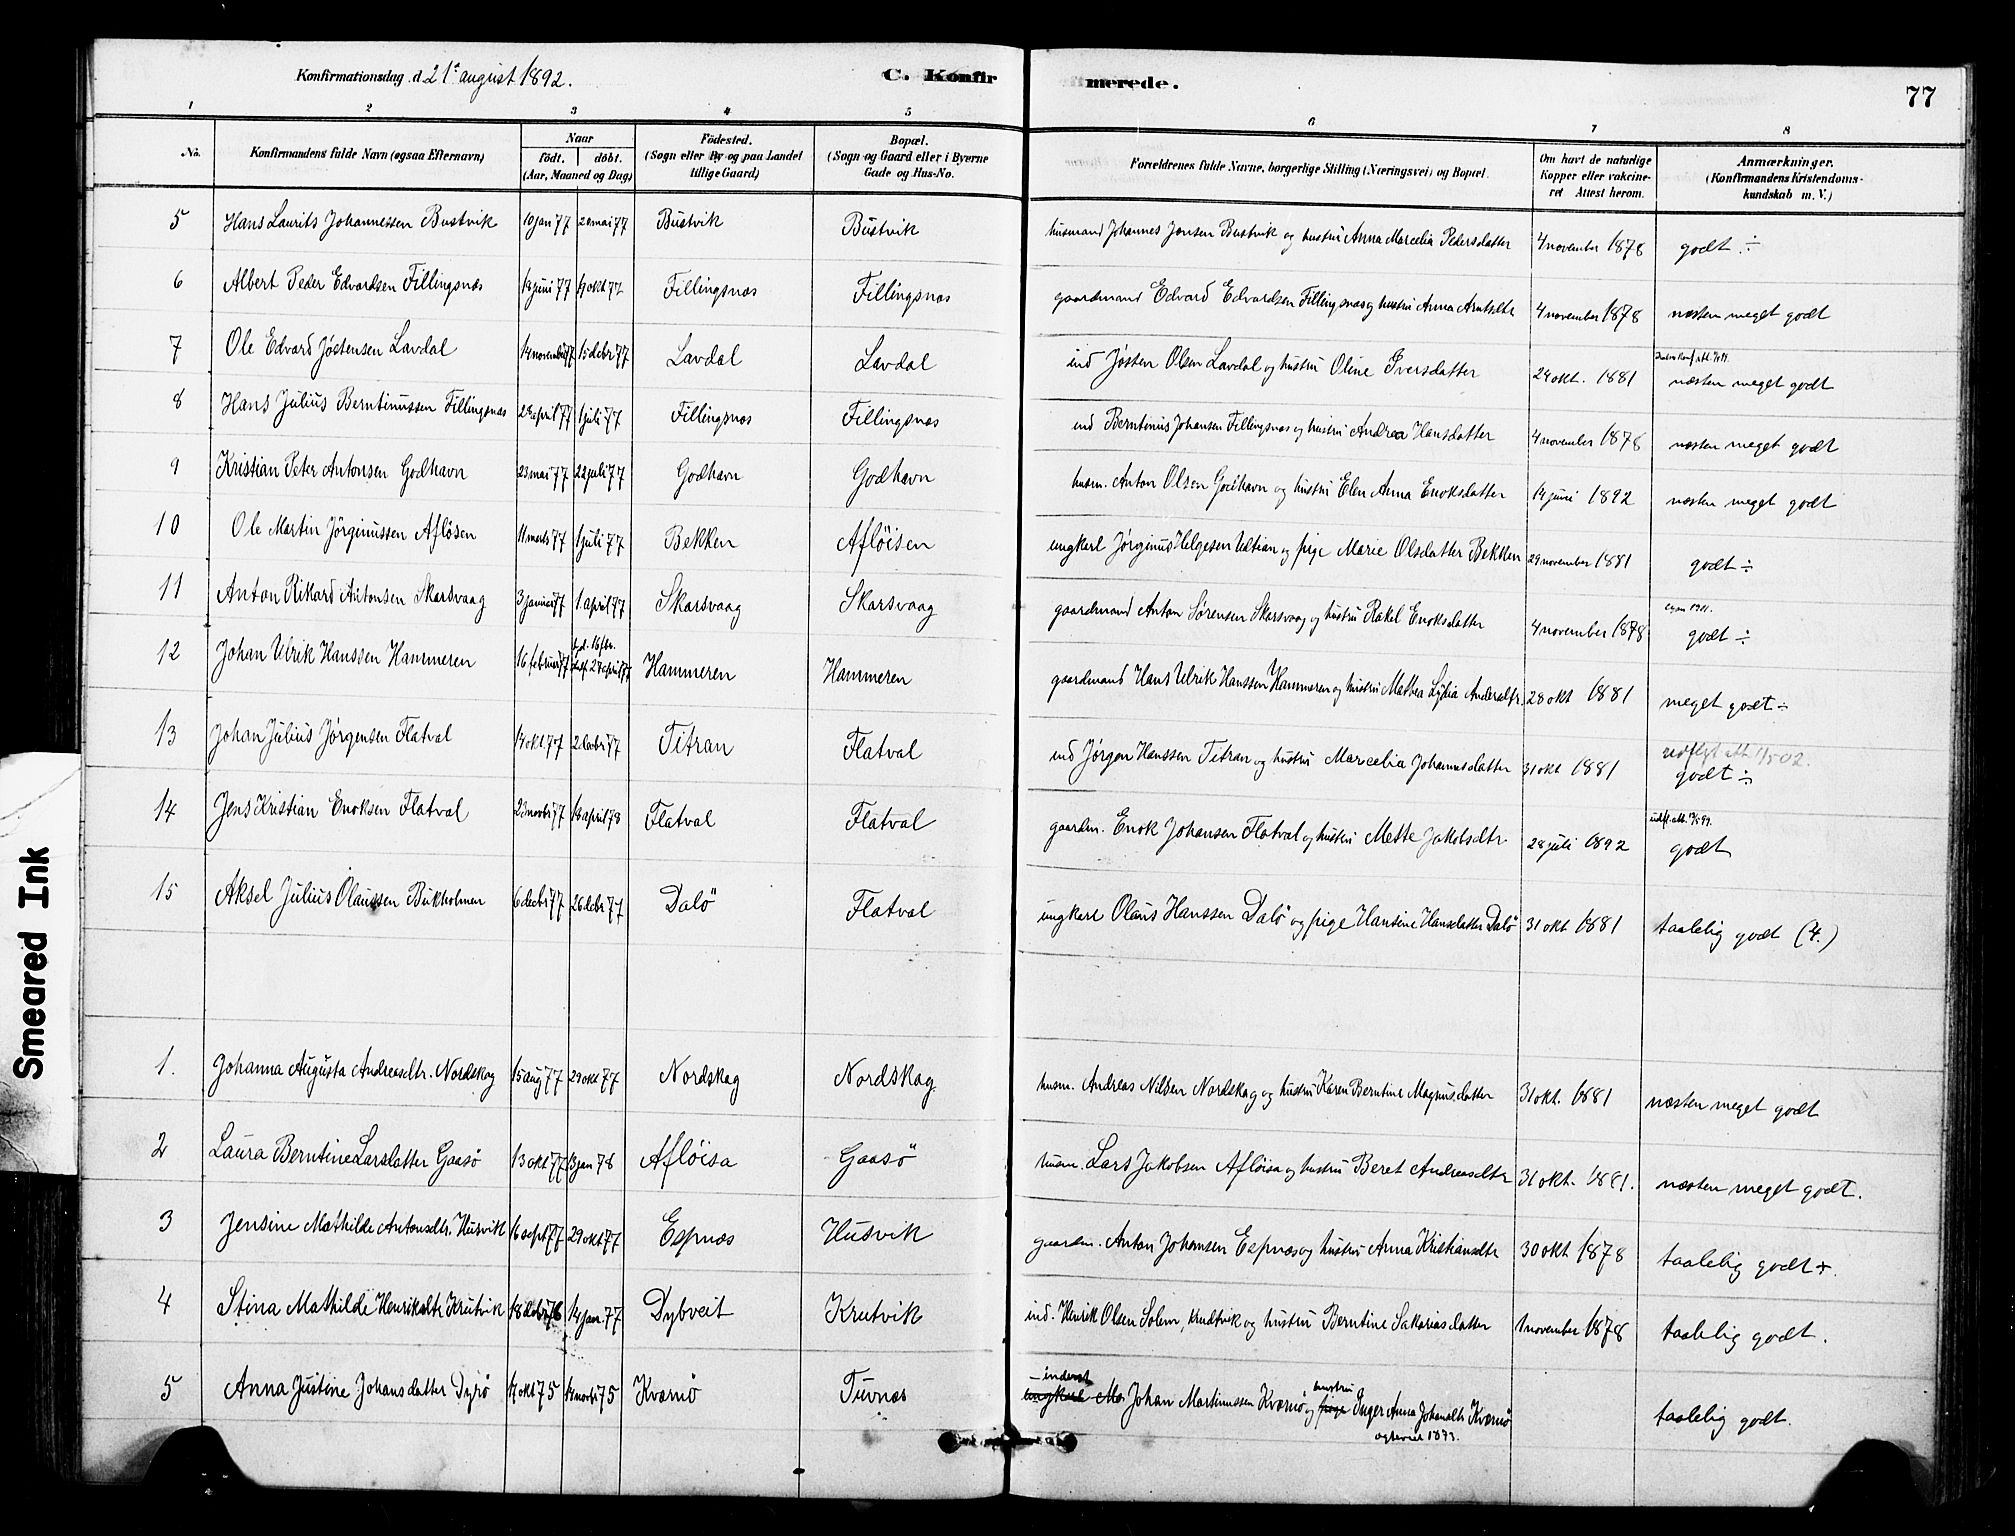 Konfirmationsdag d. 21de august 1892.
C. Konfirmerede.
77
1 2 3 4 5 6 7 8
No. Konfirmandens fulde Navn (ogsaa Efternavn) Naar födt. döbt. (Aar, Maaned og Dag) Födested. (Sogn eller By og paa Landet tillige Gaard) Bopæl. (Sogn og Gaard eller i Byerne Gade og Hus-No. Forældrenes fulde Navne, borgerlige Stilling (Næringsvei) og Bopæl. Om havt de naturlige Kopper eller vakcineret Attest herom. Anmærkninger. (Konfirmandens Kristendomskundskab m. V.)
5 Hans Laurits Johannessen Bustvik 10 jan 77 20 mai 77 Bustvik Bustvik husmand Johannes Jensen Bustvik og hustru Anna Marcelia Pedersdatter 4 november 1878 godt ÷
6 Albert Peder Edvardsen Fillingsnæs 18 juni 77 Fillingsnæs Fillingsnæs gaardmand Edvard Edvardsen Fillingsnæs og hustru Anna Arntsdtr 4 november 1878 næsten meget godt
7 Ole Edvard Jøstensen Lavdal 14 novembr 77 15 debr 77 Lavdal Lavdal ind Jøsten Olsen Lavdal og hustru Oline Iversdatter 24 okt. 1881 næsten meget godt
8 Hans Julius Berntinussen Fillingsnæs 28 april 77 1 juli 77 Fillingsnæs Fillingsnæs ind Berntinus Johansen Fillingsnæs og hustru Andrea Hansdatter 4 november 1878 næsten meget godt
9 Kristian Peter Antonsen Godhavn 23 mai 77 22 juli 77 Godhavn Godhavn husm. Anton Olsen Godhavn og hustru Elen Anna Enoksdatter 14 juni 1892 næsten meget godt
10 Ole Martin Jörginussen Aflösen 11 marts 77 1 juli 77 Bekken Aflöisen ungkarl Jørginus Helgesen Ultian og pige Marie Olsdatter Bekken 29 november 1881 godt ÷
11 Anton Rikard Antonsen Skarsvaag 3 januar 77 1 april 77 Skarsvaag Skarsvaag gaardmand Anton Sørensen Skarsvaag og hustru Rakel Enoksdatter 4 november 1878 godt ÷
12 Johan Ulrik Hanssen Hammeren 16 februar 77 27 april 77 Hammeren Hammeren gaardmand Hans Ulrik Hanssen Hammeren og hustru Mathea Lydia Andersdtr. 28 okt 1881 meget godt ÷
13 Johan Julius Jörgensen Flatval 14 okt 77 2 debr 77 Titran Flatval ind Jørgen Hanssen Titran og hustru Marcelia Johannesdatter 31 okt 1881 godt ÷
14 Jens Kristian Enoksen Flatval 23 novbr 77 18 april 78 Flatval Flatval gaardm. Enok Johansen Flatval og hustru Mette Jakobsdtr 28 juli 1892 godt
15 Aksel Julius Olaussen Bukholmen 6 debr 77 26 debr 77 Dalö Flatval ungkarl Olaus Hanssen Dalö og pige Hansine Hansdatter Dalö 31 okt 1881 taalelig godt (4.)
1. Johanna Augusta Andreasdtr. Nordskag 15 aug 77 29 okt 77 Nordskag Nordskag husm. Andreas Nilsen Nordskag og hustru Karen Berntine Magnusdatter 31 okt. 1881 næsten meget godt
2 Laura Berntine Larsdatter Gaasö 13 okt 77 3 jan 78 Aflöisa Gaasö husm. Lars Jakobsen Aflöisa og hustru Beret Andreasdtr 31 okt. 1881. næsten meget godt.
3 Jensine Mathilde Antonsdtr. Husvik 16 sept 77 29 okt 77 Espnæs Husvik gaardm. Anton Johansen Espnæs og hustru Anna Kristiansdtr 30 okt 1878 taalelig godt +.
4 Stina Mathilde Henriksdtr Krutvik 18 debr 76 14 jan. 77 Dybveit Krutvik ind. Henrik Olsen Solem, Krudtvik og hustru Berntine Sakariasdatter 1 november 1878 taalelig godt.
5 Anna Justine Johansdatter Dyrö 17 okt 75 14 novbr 75 Kværnö Tuvnæs inderst ungkarl Johan Martinussen Kværnö og hustru pige Inger Anna Johansdtr Kværnö taalelig godt.
Smeared Ink